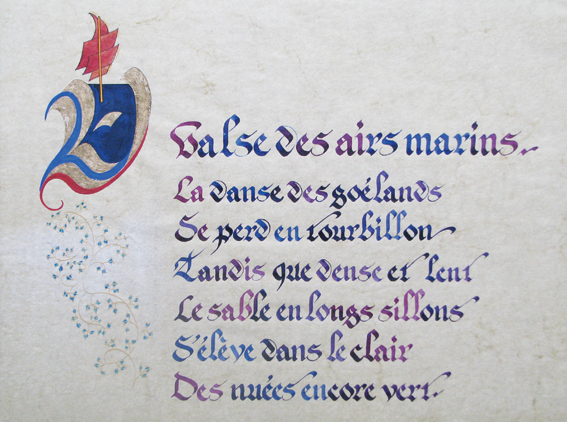 Valse des airs marins.
La danse des goélands
Se perd en tourbillon
Tandis que dense et lent
Le sable en longs sillons
S'élève dans le clair
Des nuées encore vert.